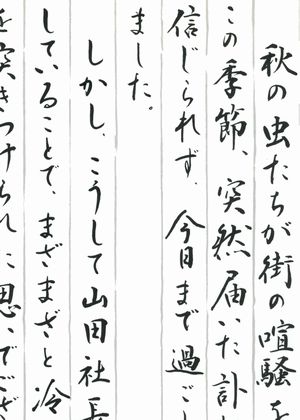 秋の虫たちが街の喧騒を
この季節、突然届いた訃
信じられず、今日まで過ごし
ました。
しかし、こうして山田社長
していることで、まざまざと冷
を突きつけられた思いでござ